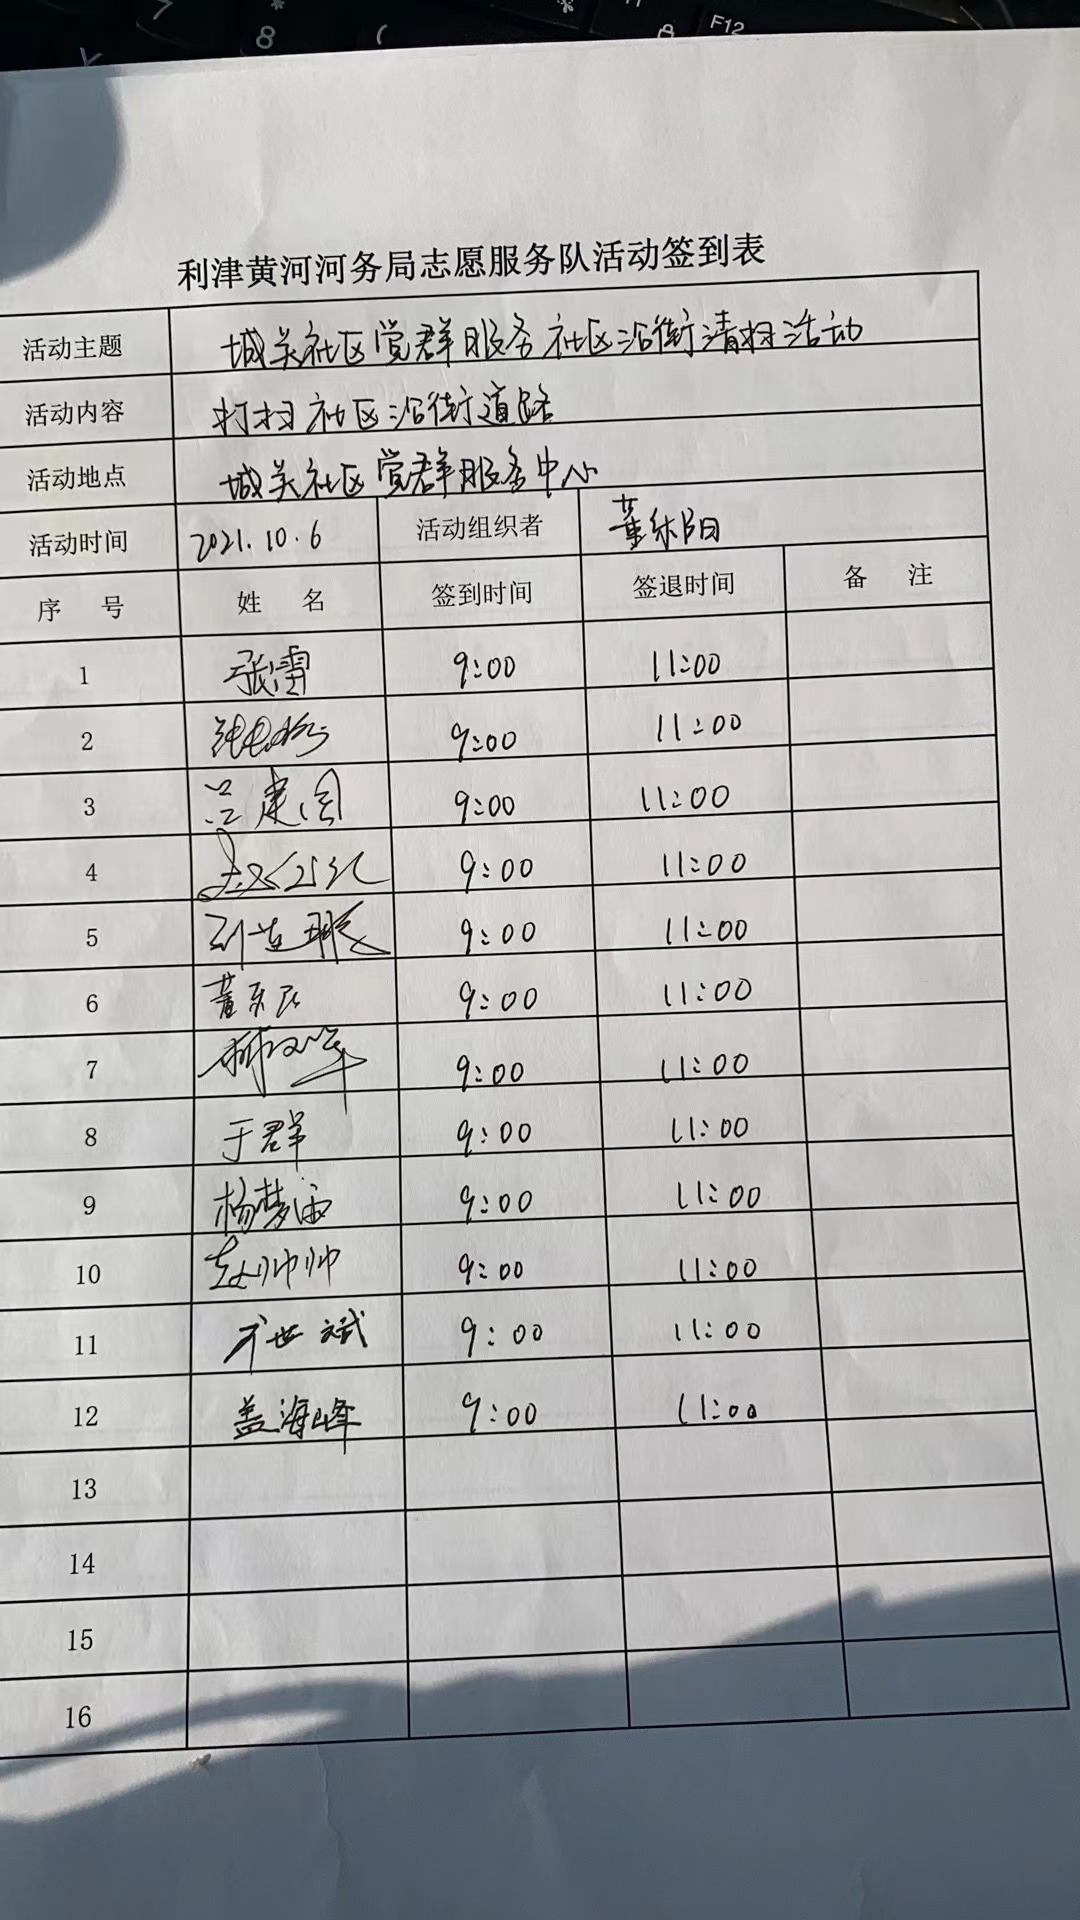 F12
8
利津黄河河务局志愿服务队活动签到表
活动主题 城关社区党群服务社区沿街清扫活动
活动内容 打扫社区沿街道路
活动地点 城关社区党群服务中心
活动时间 2021.10.6 活动组织者 董
序 号 姓 名 签到时间 签退时间 备 注
1 张雷 9:00 11:00
2 9:00 11:00
3 吕建国 9:00 11:00
4 9:00 11:00
5 9:00 11:00
6 董 9:00 11:00
7 9:00 11:00
8 于群 9:00 11:00
9 杨梦 9:00 11:00
10 赵帅帅 9:00 11:00
11 世斌 9:00 11:00
12 盖海峰 9:00 11:00
13
14
15
16